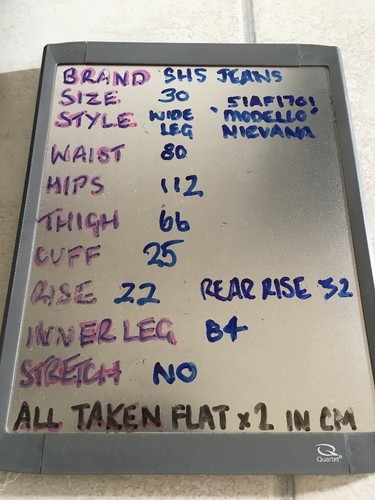 BRAND SHS JEANS
SIZE 30
STYLE WIDE LEG
51AF1761 "MODELLO" NIRVANA
WAIST 80
HIPS 112
THIGH 66
CUFF 25
RISE 22 REAR RISE 32
INNER LEG 84
STRETCH NO
ALL TAKEN FLAT x 2 IN CM
Quartet